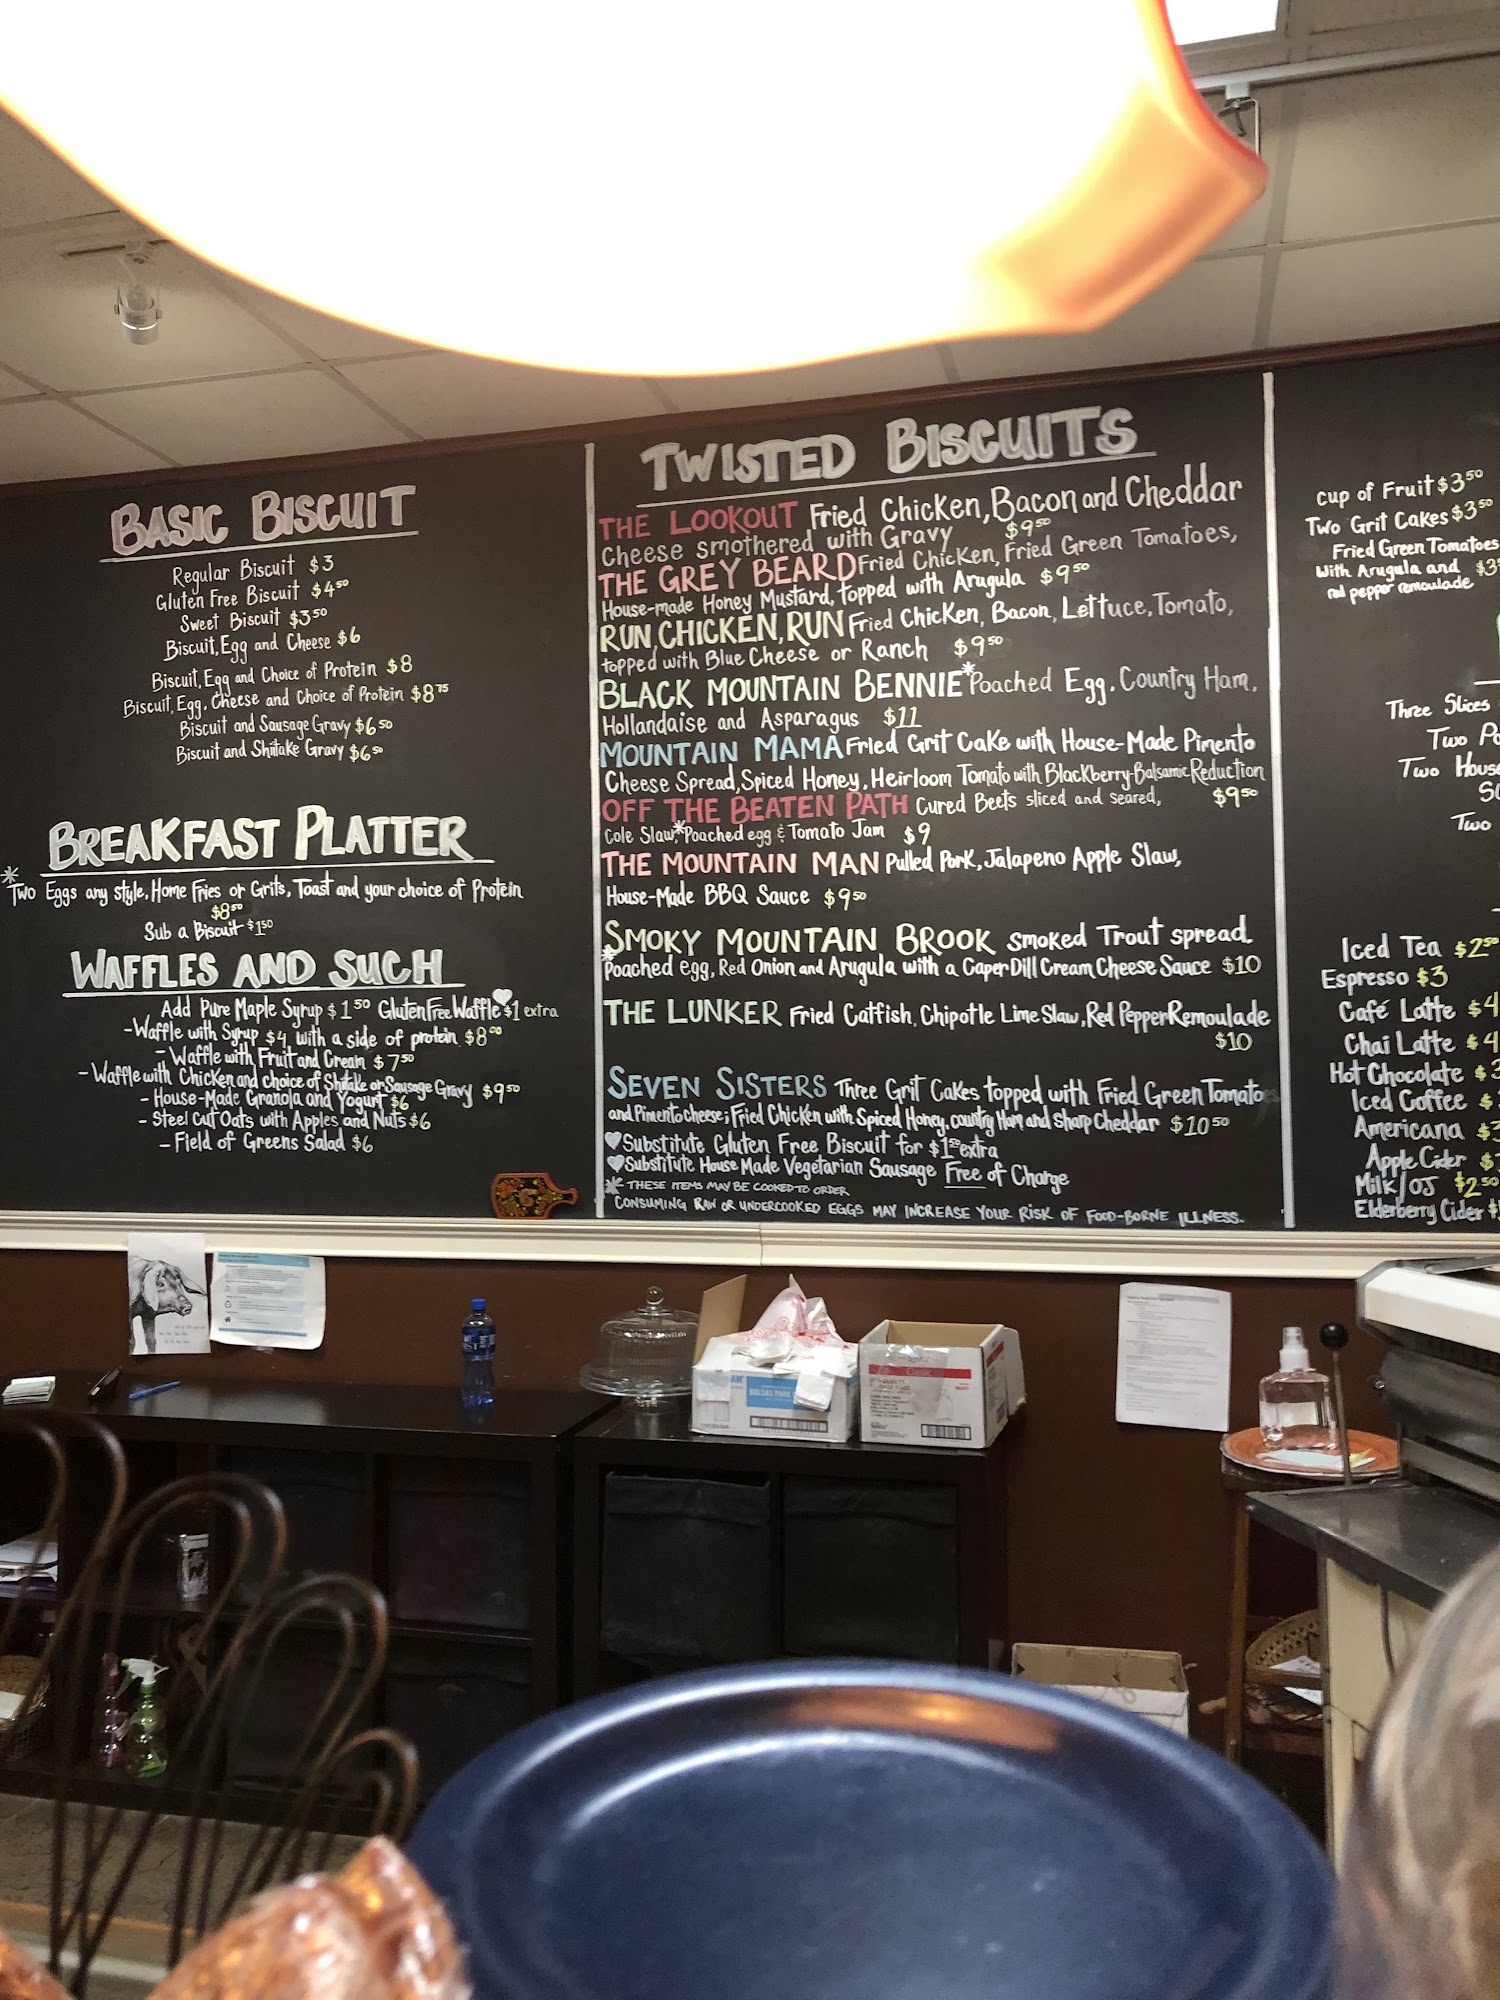 BASIC BISCUIT
Regular Biscuit $3
Gluten Free Biscuit $4.50
Sweet Biscuit $3.50
Biscuit, Egg and Cheese $6
Biscuit, Egg and Choice of Protein $8
Biscuit, Egg, Cheese and Choice of Protein $8.75
Biscuit and Sausage Gravy $6.50
Biscuit and Shitake Gravy $6.50
BREAKFAST PLATTER
* Two Eggs any style, Home Fries or Grits, Toast and your choice of Protein
$8.50
Sub a Biscuit $1.50
WAFFLES AND SUCH
Add Pure Maple Syrup $1.50 Gluten Free Waffle $1 extra
-Waffle with Syrup $4 with a side of protein $8.00
- Waffle with Fruit and Cream $7.50
- Waffle with Chicken and choice of Shitake or Sausage Gravy $9.50
- House-Made Granola and Yogurt $6
- Steel Cut Oats with Apples and Nuts $6
- Field of Greens Salad $6
TWISTED BISCUITS
THE LOOKOUT Fried Chicken, Bacon and Cheddar
Cheese smothered with Gravy $9.50
THE GREY BEARD Fried Chicken, Fried Green Tomatoes,
House-made Honey Mustard, topped with Arugula $9.50
RUN, CHICKEN, RUN Fried Chicken, Bacon, Lettuce, Tomato,
topped with Blue Cheese or Ranch $9.50
BLACK MOUNTAIN BENNIE *Poached Egg, Country Ham,
Hollandaise and Asparagus $11
MOUNTAIN MAMA Fried Grit Cake with House-Made Pimento
Cheese Spread, Spiced Honey, Heirloom Tomato with Blackberry-Balsamic Reduction
$9.50
OFF THE BEATEN PATH Cured Beets sliced and seared,
Cole Slaw, *Poached egg & Tomato Jam $9
THE MOUNTAIN MAN Pulled Pork, Jalapeno Apple Slaw,
House-Made BBQ Sauce $9.50
SMOKY MOUNTAIN BROOK Smoked Trout spread,
*Poached egg, Red Onion and Arugula with a Caper Dill Cream Cheese Sauce $10
THE LUNKER Fried Catfish, Chipotle Lime Slaw, Red Pepper Remoulade
$10
SEVEN SISTERS Three Grit Cakes topped with Fried Green Tomatoes
and Pimento cheese; Fried Chicken with Spiced Honey, country Ham and sharp Cheddar $10.50
Substitute Gluten Free Biscuit for $1.50 extra
Substitute House Made Vegetarian Sausage Free of Charge
* THESE ITEMS MAY BE COOKED TO ORDER
CONSUMING RAW OR UNDERCOOKED EGGS MAY INCREASE YOUR RISK OF FOOD-BORNE ILLNESS.
Cup of Fruit $3.50
Two Grit Cakes $3.50
Fried Green Tomatoes
With Arugula and $3
red pepper remoulade
Three Slices
Two
Two House
Two
Iced Tea $2.50
Espresso $3
Café Latte $4
Chai Latte $4
Hot Chocolate $3
Iced Coffee $
Americana $3
Apple Cider $
Milk/OJ $2.50
Elderberry Cider $
BOLSAS PARA